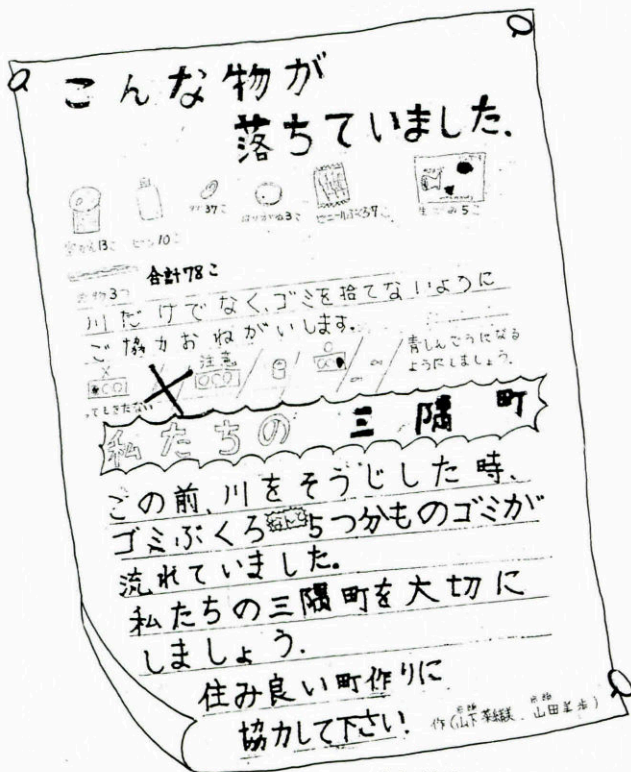 こんな物が
落ちていました.
空かん13こ
ビン10こ
37こ
はりがね3こ
ビニールぶくろ7こ
生ゴミ5こ
合計78こ
川だけでなく、ゴミを捨てないように
ご協力おねがいします.
注意
青しんごうになる
ようにしましょう.
私たちの三隅町
この前、川をそうじした時、
ゴミぶくろ 5つ分ものゴミが
流れていました.
私たちの三隅町を大切に
しましょう.
住み良い町作りに
協力して下さい.